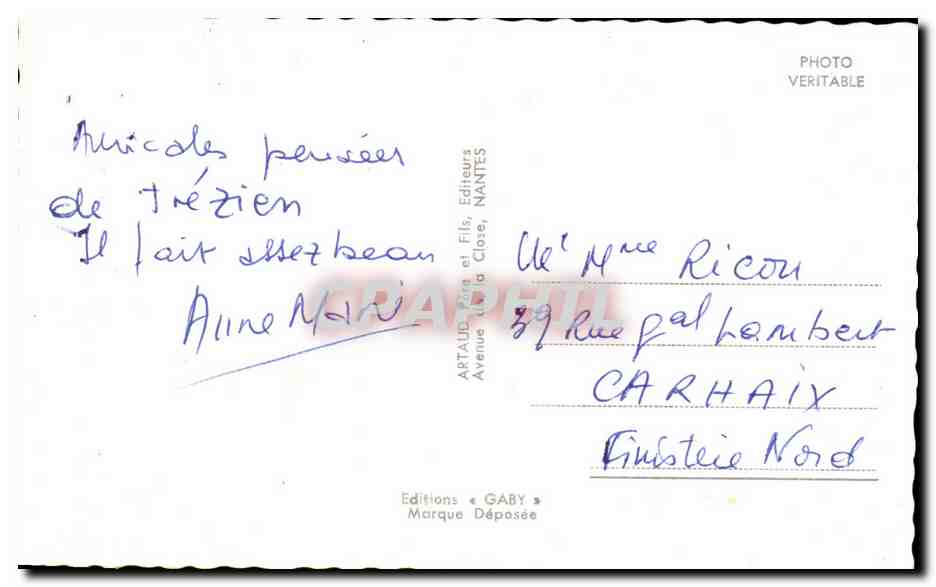 PHOTO
VERITABLE
Amicales pensées
de Trézien
Il fait assez beau
Anne Marie
ARTAUD Père et Fils, Editeurs
Avenue de la Close, NANTES
CPAPHIL
Mme Ricou
39 Rue Gal Lambert
CARHAIX
Finistère Nord
Editions « GABY »
Marque Déposée